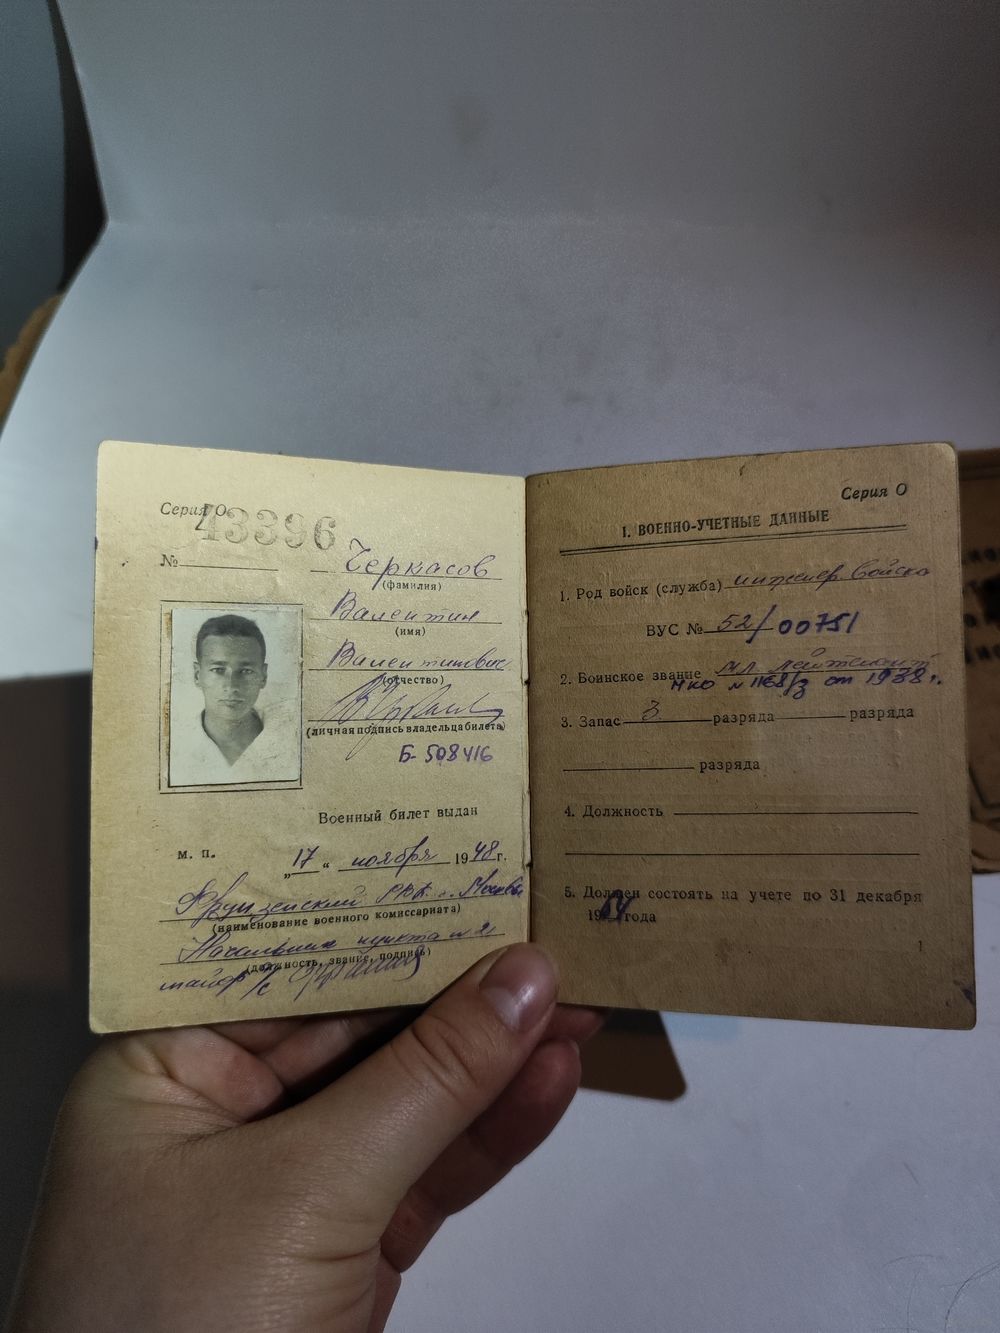 Серия О
43396
№
Черкасов
(фамилия)
Валентин
(имя)
Валентинович
(отчество)
(личная подпись владельца билета)
Б-508416
Военный билет выдан
м. п.
„17“ ноября 1948 г.
Фрунзенский РВК г. Москвы
(наименование военного комиссариата)
Начальник пункта №2
(должность, звание, подпись)
майор
Серия О
I. ВОЕННО-УЧЕТНЫЕ ДАННЫЕ
1. Род войск (служба) инженер. войска
ВУС № 52/00751
2. Воинское звание мл. лейтенант
НКО № 1168/з от 1938 г.
3. Запас 3 разряда разряда
разряда
4. Должность
5. Должен состоять на учете по 31 декабря
19 года
1